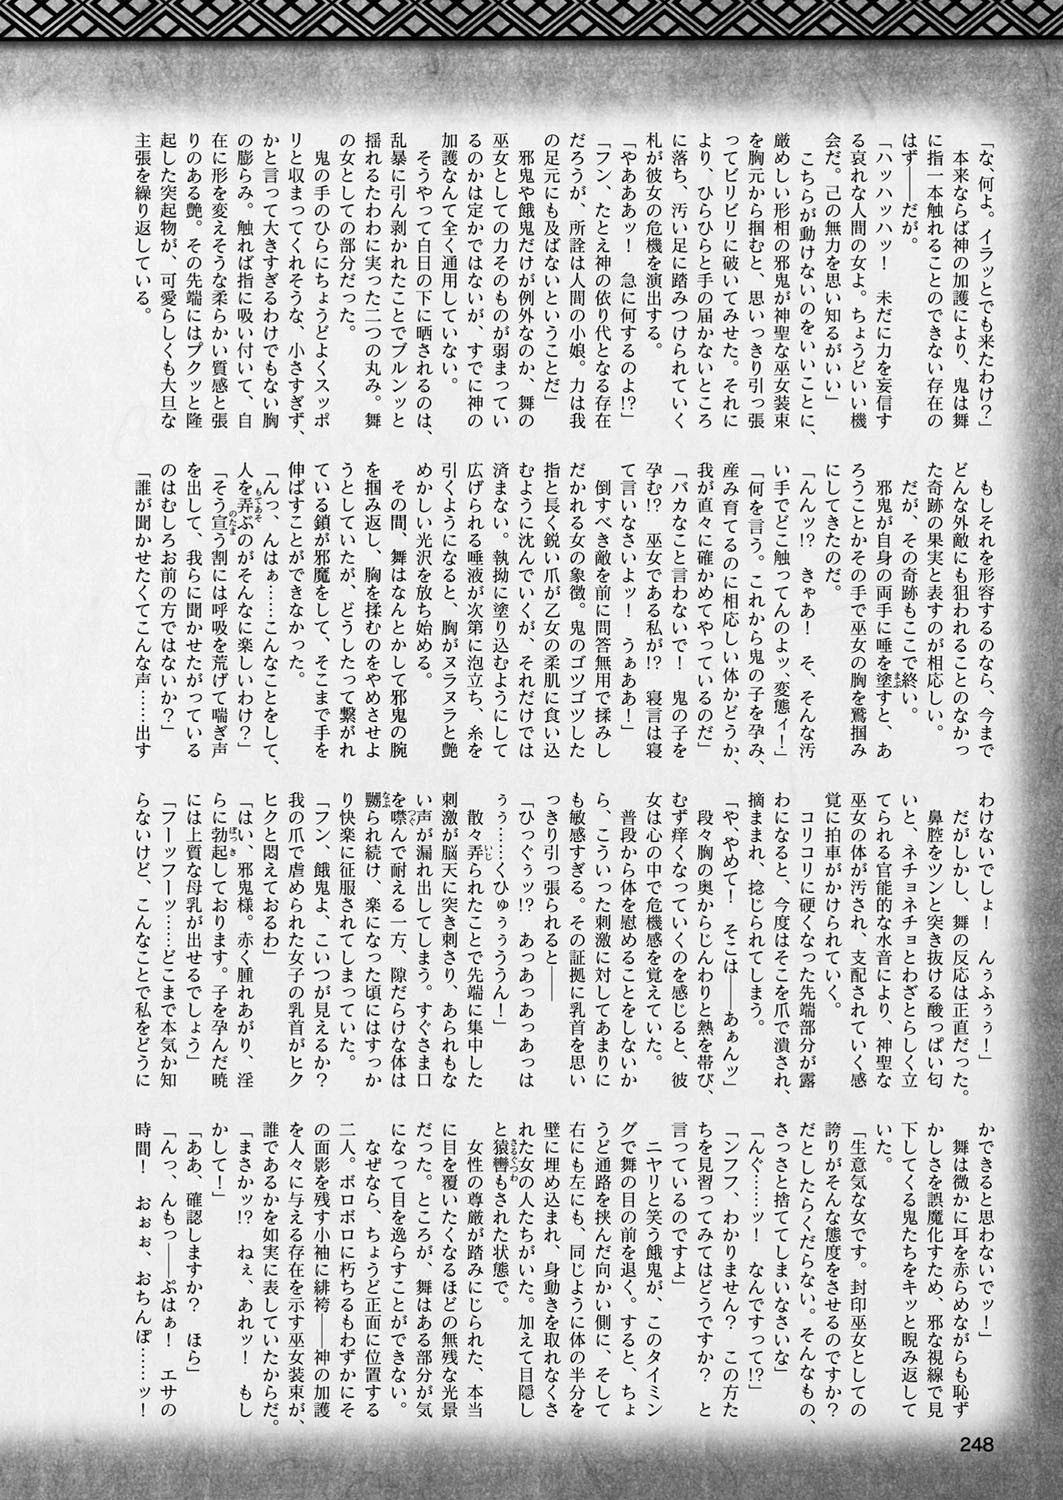 「な、何よ。イラッとでも来たわけ？」
　本来ならば神の加護により、鬼は舞
に指一本触れることのできない存在の
はず――だが。
「ハッハッハッ！　未だに力を妄信す
る哀れな人間の女よ。ちょうどいい機
会だ。己の無力を思い知るがいい」
　こちらが動けないのをいいことに、
厳めしい形相の邪鬼が神聖な巫女装束
を胸元から掴むと、思いっきり引っ張
ってビリビリに破いてみせた。それに
より、ひらひらと手の届かないところ
に落ち、汚い足に踏みつけられていく
札が彼女の危機を演出する。
「やあああッ！　急に何するのよ!?」
「フン、たとえ神の依り代となる存在
だろうが、所詮は人間の小娘。力は我
の足元にも及ばないということだ」
　邪鬼や餓鬼だけが例外なのか、舞の
巫女としての力そのものが弱まってい
るのかは定かではないが、すでに神の
加護なんて全く通用していない。
　そうやって白日の下に晒されるのは、
乱暴に引ん剥かれたことでブルンッと
揺れるたわわに実った二つの丸み。舞
の女としての部分だった。
　鬼の手のひらにちょうどよくスッポ
リと収まってくれそうな、小さすぎず、
かと言って大きすぎるわけでもない胸
の膨らみ。触れば指に吸い付いて、自
在に形を変えそうな柔らかい質感と張
りのある艶。その先端にはプクッと隆
起した突起物が、可愛らしくも大旦な
主張を繰り返している。
　もしそれを形容するのなら、今まで
どんな外敵にも狙われることのなかっ
た奇跡の果実と表すのが相応しい。
　だが、その奇跡もここで終い。
　邪鬼が自身の両手に唾を塗すと、あ
ろうことかその手で巫女の胸を鷲掴み
にしてきたのだ。
「んんッ!?　きゃあ！　そ、そんな汚
い手でどこ触ってんのよッ、変態ィー！」
「何を言う。これから鬼の子を孕み、
産み育てるのに相応しい体かどうか、
我が直々に確かめてやっているのだ」
「バカなこと言わないで！　鬼の子を
孕む!?　巫女である私が!?　寝言は寝
て言いなさいよッ！　うぁああ！」
　倒すべき敵を前に問答無用で揉みし
だかれる女の象徴。鬼のゴツゴツした
指と長く鋭い爪が乙女の柔肌に食い込
むように沈んでいくが、それだけでは
済まない。執拗に塗り込むようにして
広げられる唾液が次第に泡立ち、糸を
引くようになると、胸がヌラヌラと艶
めかしい光沢を放ち始める。
　その間、舞はなんとかして邪鬼の腕
を掴み返し、胸を揉むのをやめさせよ
うとしていたが、どうしたって繋がれ
ている鎖が邪魔をして、そこまで手を
伸ばすことができなかった。
「んっ、んはぁ……こんなことをして、
人を弄ぶのがそんなに楽しいわけ？」
「そう宣う割には呼吸を荒げて喘ぎ声
を出して、我らに聞かせたがっている
のはむしろお前の方ではないか？」
「誰が聞かせたくてこんな声……出す
わけないでしょ！　んぅふぅぅ！」
　だがしかし、舞の反応は正直だった。
　鼻腔をツンと突き抜ける酸っぱい匂
いと、ネチョネチョとわざとらしく立
てられる官能的な水音により、神聖な
巫女の体が汚され、支配されていく感
覚に拍車がかけられていく。
　コリコリに硬くなった先端部分が露
わになると、今度はそこを爪で潰され、
摘ままれ、捻じられてしまう。
「や、やめて！　そこは――あぁんッ」
　段々胸の奥からじんわりと熱を帯び、
むず痒くなっていくのを感じると、彼
女は心の中で危機感を覚えていた。
　普段から体を慰めることをしないか
ら、こういった刺激に対してあまりに
も敏感すぎる。その証拠に乳首を思い
っきり引っ張られると――
「ひっぐぅッ!?　あっあっあっあっは
ぅぅ……くひゅぅぅううん！」
　散々弄られたことで先端に集中した
刺激が脳天に突き刺さり、あられもな
い声が漏れ出してしまう。すぐさま口
を噤んで耐える一方、隙だらけな体は
嬲られ続け、楽になった頃にはすっか
り快楽に征服されてしまっていた。
「フン、餓鬼よ、こいつが見えるか？
我の爪で虐められた女子の乳首がヒク
ヒクと悶えておるわ」
「はい、邪鬼様。赤く腫れあがり、淫
らに勃起しております。子を孕んだ暁
には上質な母乳が出せるでしょう」
「フーッフーッ……どこまで本気か知
らないけど、こんなことで私をどうに
かできると思わないでッ！」
　舞は微かに耳を赤らめながらも恥ず
かしさを誤魔化すため、邪な視線で見
下してくる鬼たちをキッと睨み返して
いた。
「生意気な女です。封印巫女としての
誇りがそんな態度をさせるのですか？
だとしたらくだらない。そんなもの、
さっさと捨ててしまいなさいな」
「んぐ……ッ！　なんですって!?」
「ンフフ、わかりません？　この方た
ちを見習ってみてはどうですか？　と
言っているのですよ」
　ニヤリと笑う餓鬼が、このタイミン
グで舞の目の前を退く。すると、ちょ
うど通路を挟んだ向かい側に、そして
右にも左にも、同じように体の半分を
壁に埋め込まれ、身動きを取れなくさ
れた女の人たちがいた。加えて目隠し
と猿轡もされた状態で。
　女性の尊厳が踏みにじられた、本当
に目を覆いたくなるほどの無残な光景
だった。ところが、舞はある部分が気
になって目を逸らすことができない。
　なぜなら、ちょうど正面に位置する
二人。ボロボロに朽ちるもわずかにそ
の面影を残す小袖に緋袴――神の加護
を人々に与える存在を示す巫女装束が、
誰であるかを如実に表していたからだ。
「まさかッ!?　ねぇ、あれッ！　もし
かして！」
「ああ、確認しますか？　ほら」
「んっ、んもっ――ぷはぁ！　エサの
時間！　おぉぉ、おちんぽ……ッ！
248